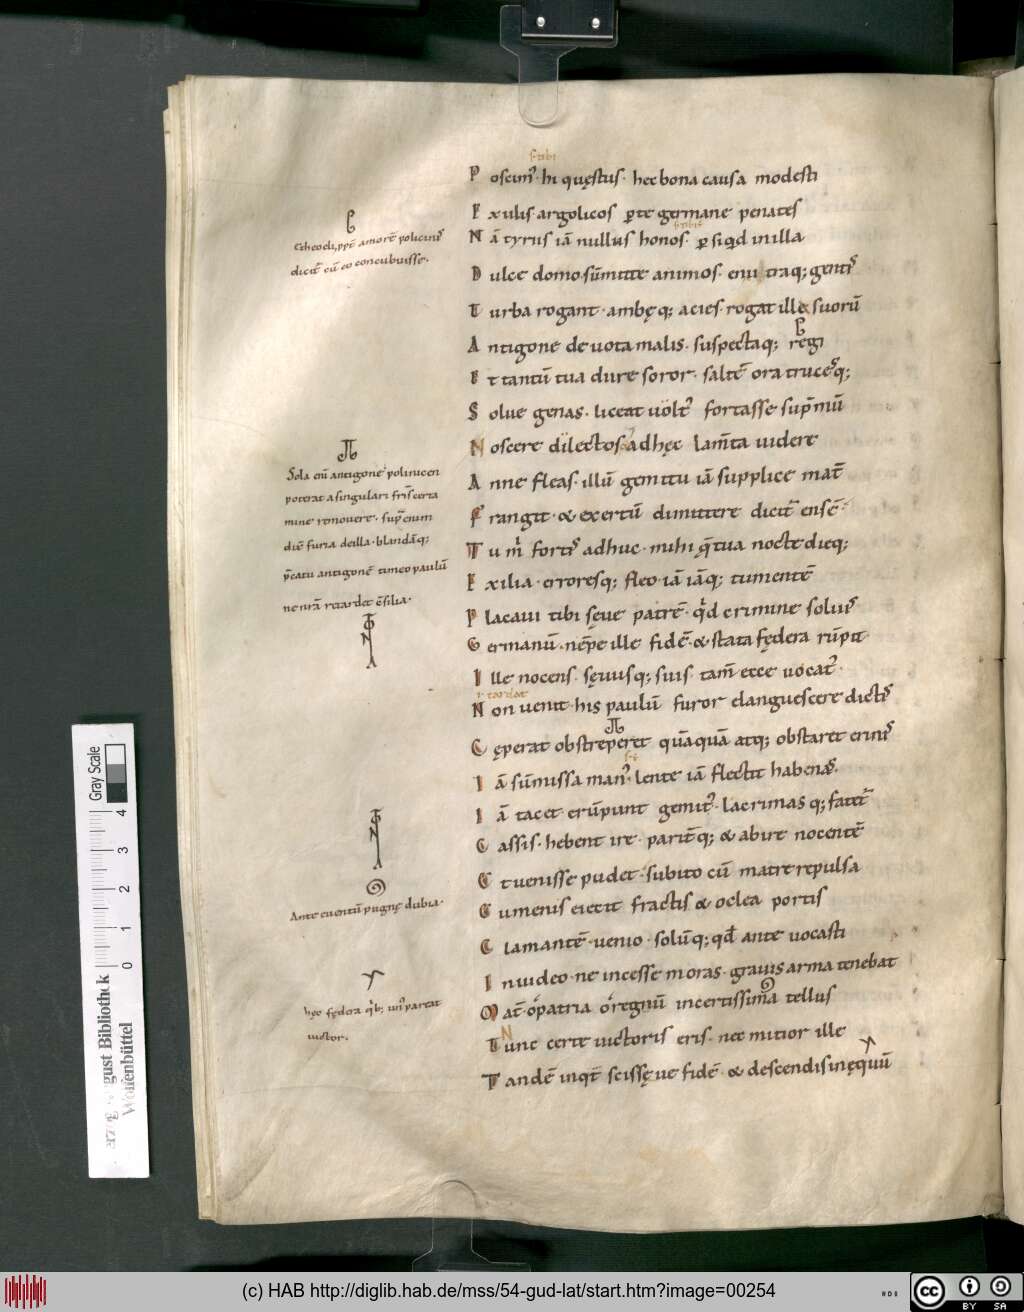 s. tibi
P oscim᷒ hi quęstus · hec bona causa modesti
E xulis · argolicos ꝑte germane penates
s. tibi
N ā tyrus iā nullus honos · ꝑ siqd in illa
D ulce domo · sūmitte animos · en urraq; gentis
T urba rogant · ambęq; acies · rogat illa suorū
A ntigone deuota malis · suspectaq; regi
E t tantū tua dure soror · saltē ora trucesq;
S olue genas · liceat uolt᷒ fortasse sup̄mū
N oscere dilectos adhęc lam̄ta uidere
A nne fleas · illū gemitu iā supplice mat̄
F rangit · & exertū dimittere dicit᷒ ensē ·
T u m̊ fortis adhuc · mihi q̄ tua nocte dieq;
E xilia · erroresq; fleo · iā iāq; tumentē
P laçaui tibi sęue patrē · qd crimine soluis
G ermanū · nēpe ille fidē · & stata fędera rūpit ·
I lle nocens · sęuusq; suis · tam̄ ecce uocat᷒ ·
r tardat
N on uenit · his paulū furor elanguescere dictis
C ęperat obstreperet quāquā atq; obstaret erinis
I ā sūmissa man᷒ · lente iā flectit habenas ·
I ā tacet erūpunt gemit᷒ · lacrimas q; fatet᷒
C assis · hebent irę · parit̄q; & abire nocentē
E t uenisse pudet · subito cū matre repulsa
E umenis eiecit fractis & oclea portis
C lamantē · uenio · solūq; qd̄ ante uocasti
I nuideo · ne incesse moras · grauis arma tenebat
M at̄ · o patria o regnū incertissima tellus
T unc certe uictoris eris · nec mitior ille
T andē inqt̄ scissęue fidē · & descendis in ęquū
Etheocli, ppt̄ amorē policinis
dicit᷒ cū eo concubuisse ·
Sola eni antigone polinicen
poterat a singulari fris certa
mine remouere · sup̄ enim
diē furia de illa · blandāq;
p̄catu antigonē timeo paulū
ne nrā retardet c̄silia ·
Ante euentū pugnę dubia ·
hęc fędera qb; un᷒ pareat
uictor ·
Gray Scale
4
3
2
1
0
gust Bibliothek
Wolfenbüttel
(c) HAB http://diglib.hab.de/mss/54-gud-lat/start.htm?image=00254
cc BY SA